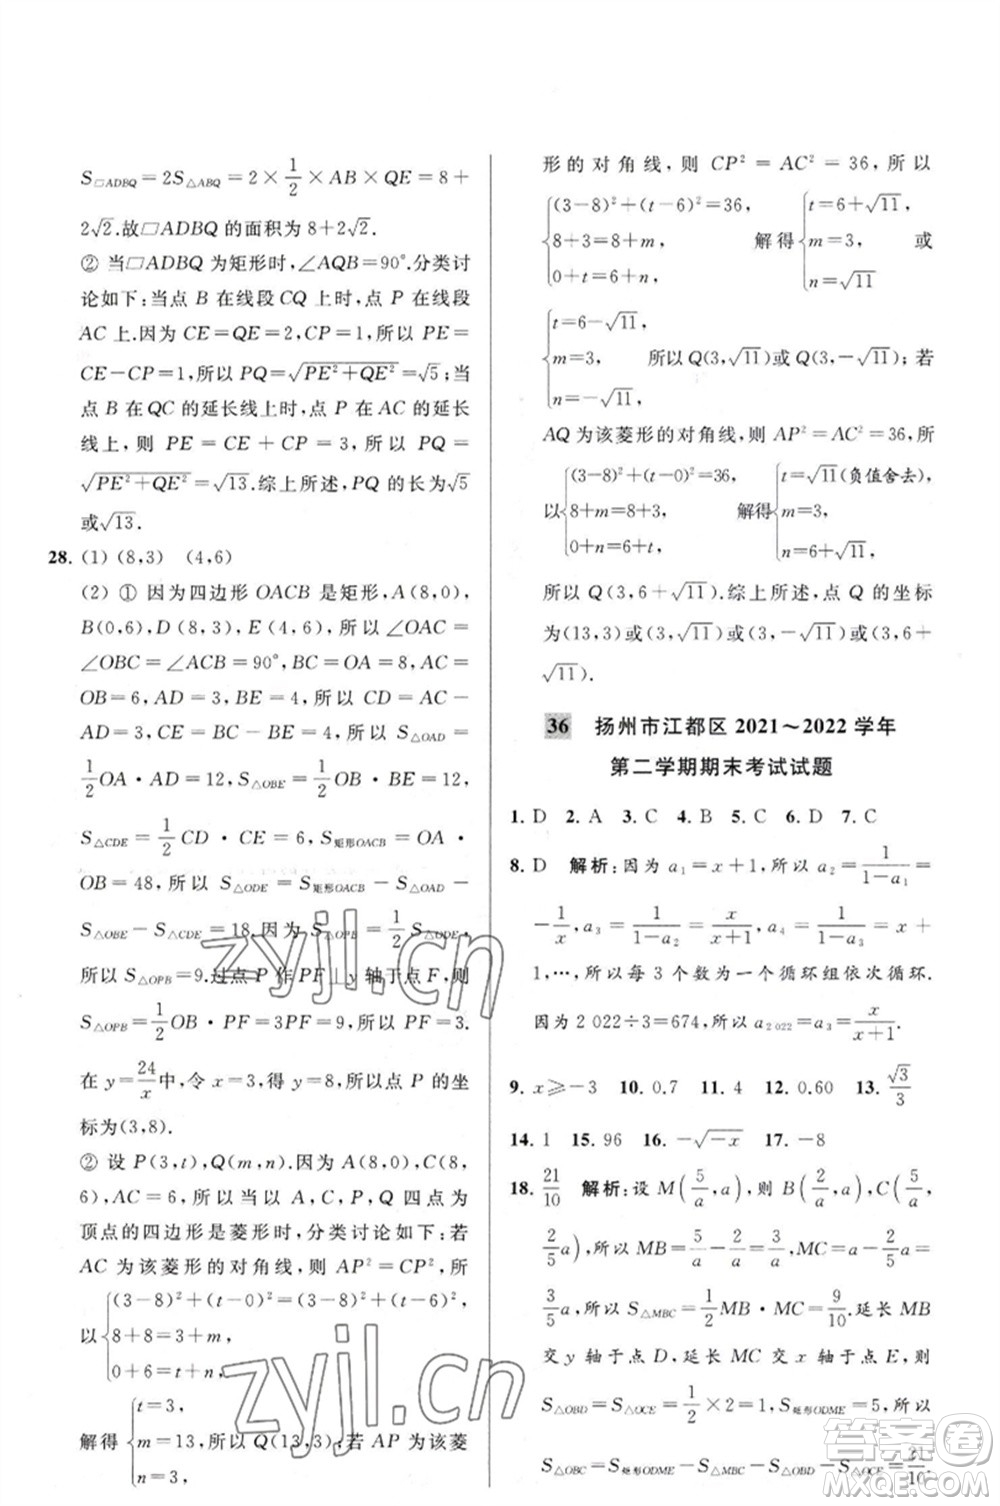 S□ADBQ=2S△ABQ=2×1/2×AB×QE=8+
2√2.故□ADBQ的面积为8+2√2.
② 当□ADBQ为矩形时,∠AQB=90°.分类讨
论如下:当点 B 在线段CQ 上时,点 P 在线段
AC上.因为CE=QE=2,CP=1,所以 PE=
CE-CP=1,所以PQ=√(PE²+QE²)=√5;当
点 B 在QC 的延长线上时,点 P 在AC 的延长
线上,则 PE=CE+CP=3,所以 PQ=
√(PE²+QE²)=√13.综上所述,PQ 的长为√5
或√13.
28. (1) (8,3) (4,6)
(2) ① 因为四边形OACB是矩形,A(8,0),
B(0,6),D(8,3),E(4,6),所以∠OAC=
∠OBC=∠ACB=90°,BC=OA=8,AC=
OB=6,AD=3,BE=4,所以 CD=AC-
AD=3,CE=BC-BE=4,所以 S△OAD=
1/2OA·AD=12,S△OBE=1/2OB·BE=12,
S△CDE=1/2CD·CE=6,S矩形OACB=OA·
OB=48,所以 S△ODE=S矩形OACB-S△OAD-
S△OBE-S△CDE=18.因为 S△OPB=1/2S△ODE,
所以S△OPB=9.过点P作PF⊥y轴于点F,则
S△OPB=1/2OB·PF=3PF=9,所以 PF=3.
在 y=24/x中,令 x=3,得 y=8,所以点 P 的坐
标为(3,8).
② 设 P(3,t),Q(m,n).因为 A(8,0),C(8,
6),AC=6,所以当以 A,C,P,Q 四点为
顶点的四边形是菱形时,分类讨论如下:若
AC为该菱形的对角线,则 AP²=CP²,所
以{(3-8)²+(t-0)²=(3-8)²+(t-6)²,
8+8=3+m,
0+6=t+n,
解得{t=3,
m=13,所以Q(13,3);若 AP 为该菱
n=3,
形的对角线,则 CP²=AC²=36,所以
{(3-8)²+(t-6)²=36,
8+3=8+m,
0+t=6+n,
解得{t=6+√11,
m=3,
n=√11
或
{t=6-√11,
m=3,
n=-√11,
所以Q(3,√11)或Q(3,-√11);若
AQ为该菱形的对角线,则 AP²=AC²=36,所
以{(3-8)²+(t-0)²=36,
8+m=8+3,
0+n=6+t,
解得{t=√11(负值舍去),
m=3,
n=6+√11,
所以 Q(3,6+√11).综上所述,点 Q 的坐标
为(13,3)或(3,√11)或(3,-√11)或(3,6+
√11).
36 扬州市江都区 2021~2022 学年
第二学期期末考试试题
1. D 2. A 3. C 4. B 5. C 6. D 7. C
8. D 解析:因为 a₁=x+1,所以 a₂=1/(1-a₁)=
-1/x,a₃=1/(1-a₂)=x/(x+1),a₄=1/(1-a₃)=x+
1,…,所以每 3 个数为一个循环组依次循环.
因为 2 022÷3=674,所以 a₂ ₀₂₂=a₃=x/(x+1).
9. x≥-3 10. 0.7 11. 4 12. 0.60 13. √3/3
14. 1 15. 96 16. -√(-x) 17. -8
18. 21/10 解析:设 M(5/a,a),则 B(2/a,a),C(5/a,
2/5a),所以 MB=5/a-2/a=3/a,MC=a-2/5a=
3/5a,所以 S△MBC=1/2MB·MC=9/10.延长 MB
交 y 轴于点 D,延长 MC 交 x 轴于点 E,则
S△OBD=S△OCE=1/2×2=1,S矩形ODME=5,所以
S△OBC=S矩形ODME-S△MBC-S△OBD-S△OCE=21/10.
zyjl.cn
zyjl.cn
答案圈
MXQE.COM